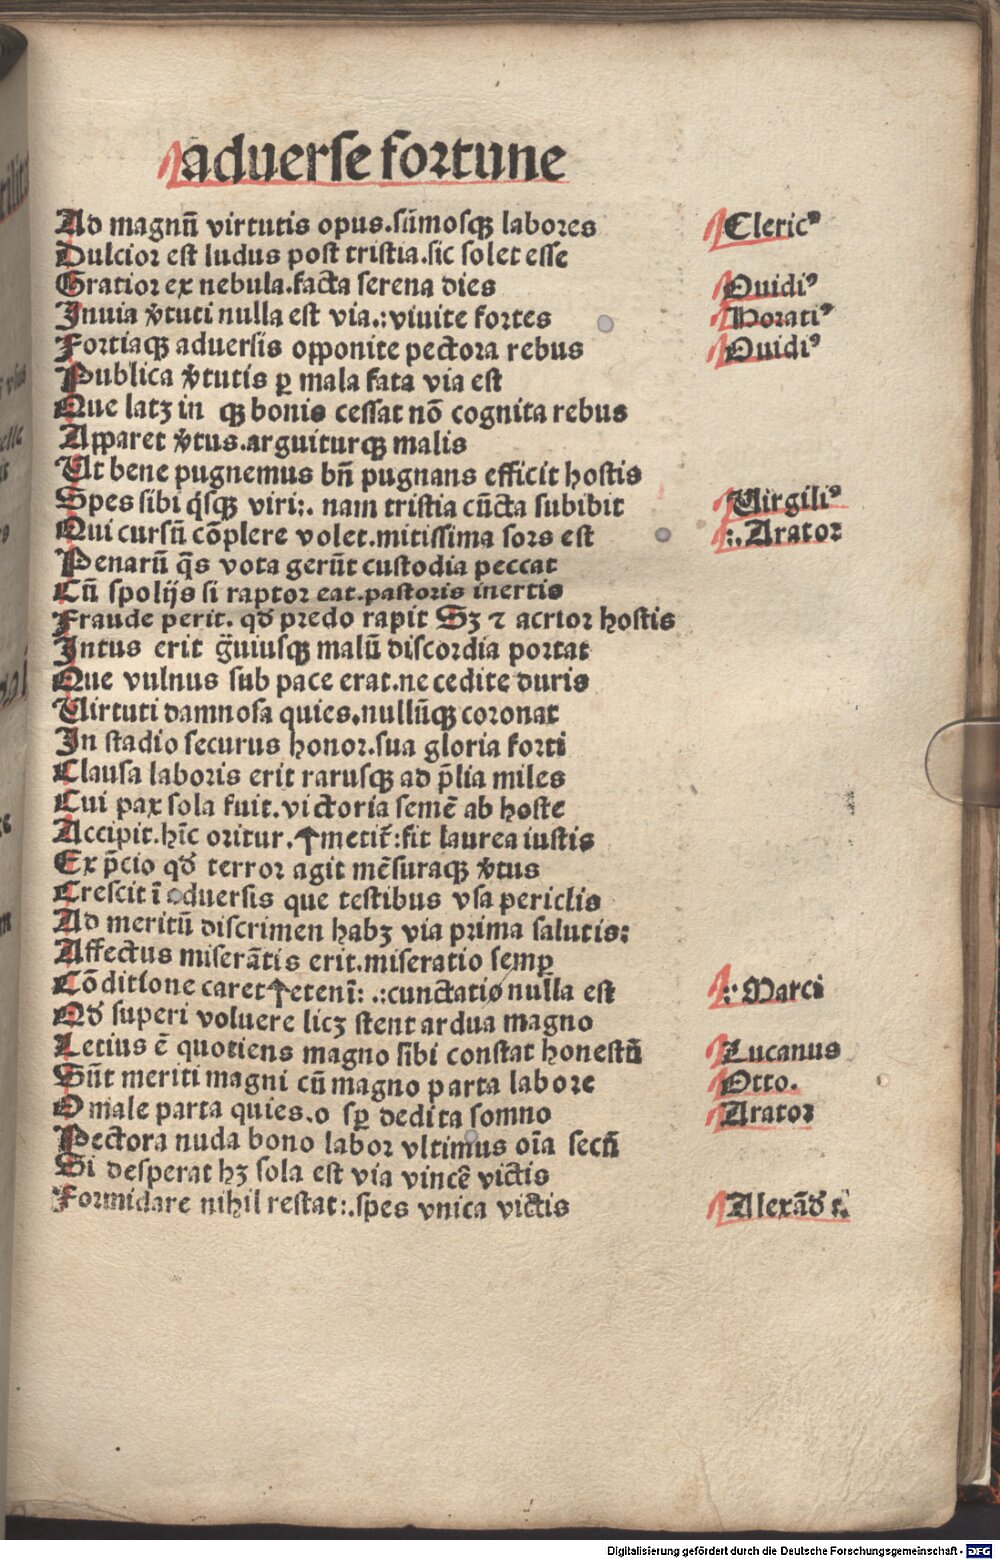 aduerſe fortune
Ad magnū virtutis opus.ſūmoſqꝫ labores Clericꝰ
Dulcior eſt ludus poſt triſtia.ſic ſolet eſſe
Gratior ex nebula.facta ſerena dies Ouidiꝰ
Inuia v̾tuti nulla eſt via.:viuite fortes Horatiꝰ
Fortiaqꝫ aduerſis opponite pectora rebus Ouidiꝰ
Publica v̾tutis ꝑ mala fata via eſt
Que latꝫ in qꝫ bonis ceſſat nō cognita rebus
Apparet v̾tus.arguiturqꝫ malis
Ut bene pugnemus bn̄ pugnans efficit hoſtis
Spes ſibi q̇ſqꝫ viri:. nam triſtia cūcta ſubibit Uirgiliꝰ
Qui curſū cōplere volet.mitiſſima ſors eſt :.Arator
Penarū q̄s vota gerūt cuſtodia peccat
Cū ſpolijs ſi raptor eat.paſtoris inertis
Fraude perit. qd̛ predo rapit Sꝫ ⁊ acrior hoſtis
Intus erit g̈uiuſqꝫ malū diſcordia portat
Que vulnus ſub pace erat.ne cedite duris
Uirtuti damnoſa quies.nullūqꝫ coronat
In ſtadio ſecurus honor.ſua gloria forti
Clauſa laboris erit rarusqꝫ ad p̄lia miles
Cui pax ſola fuit.victoria ſemē ab hoſte
Accipit.hīc oritur.↑metit̄:fit laurea iuſtis
Ex p̄cio qd̛ terror agit mēſuraqꝫ v̾tus
Creſcit ī aduerſis que teſtibus vſa periclis
Ad meritū diſcrimen habꝫ via prima ſalutis:
Affectus miſerātis erit.miſeratio ſemꝑ
Cōditione caret↑etenī: .:cunctatio nulla eſt :· Marci
Qd̛ ſuperi voluere licꝫ ſtent ardua magno
Letius ē quotiens magno ſibi conſtat honeſtū Lucanus
Sūt meriti magni cū magno parta labore Otto.
O male parta quies.o ſꝑ dedita ſomno Arator
Pectora nuda bono labor vltimus oīa ſecū
Si deſperat hꝫ ſola eſt via vincē victis
Formidare nihil reſtat:.ſpes vnica victis Alexād̛ r̛.
Digitalisierung gefördert durch die Deutsche Forschungsgemeinschaft - DFG